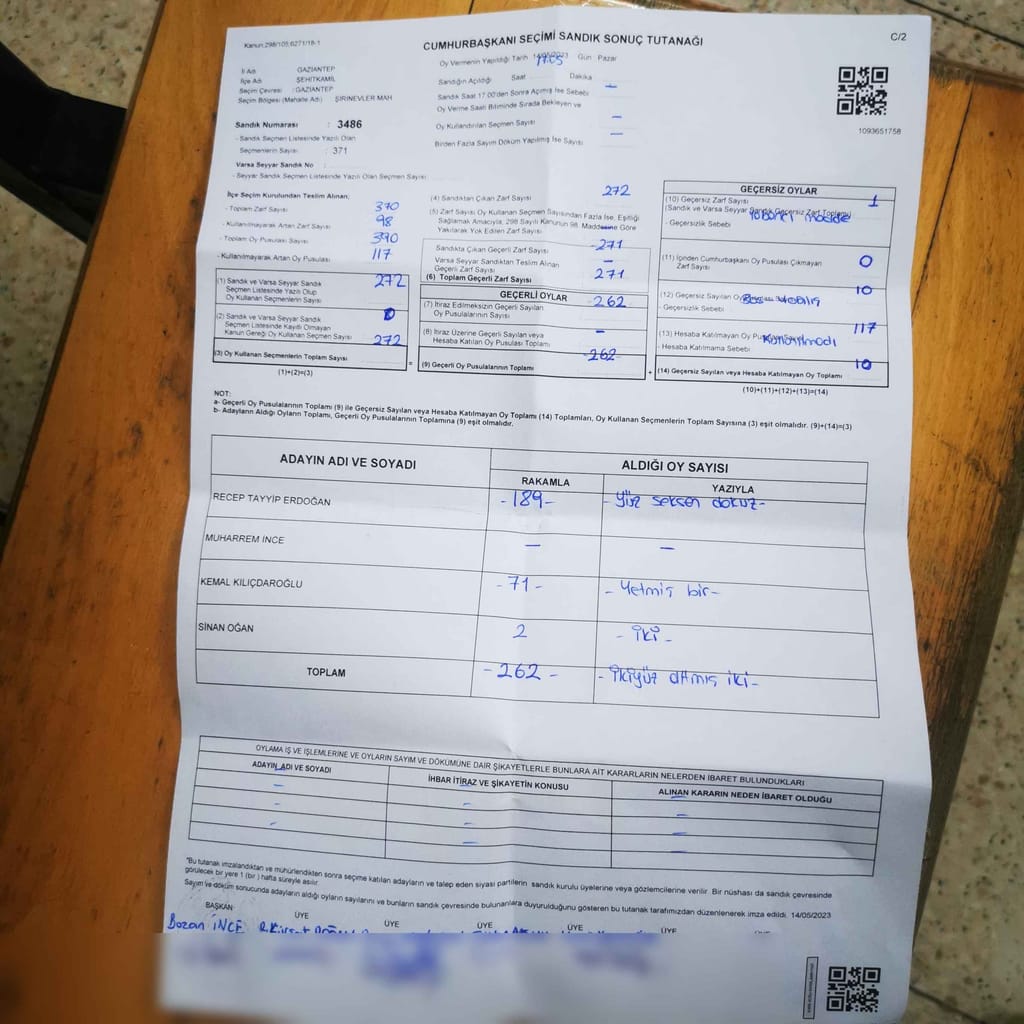 Kanun:298/105;6271/18-1
CUMHURBAŞKANI SEÇİMİ SANDIK SONUÇ TUTANAĞI
C/2
İl Adı GAZİANTEP
İlçe Adı ŞEHİTKAMİL
Seçim Çevresi :GAZİANTEP
Seçim Bölgesi (Mahalle Adı) ŞİRİNEVLER MAH
Oy Vermenin Yapıldığı Tarih 14/05/2023 Gün Pazar
17:05
Sandığın Açıldığı Saat Dakika
Sandık Saat 17:00'den Sonra Açılmış İse Sebebi —
Oy Verme Saati Bitiminde Sırada Bekleyen ve
Oy Kullandırılan Seçmen Sayısı —
Birden Fazla Sayım Döküm Yapılmış İse Sayısı —
1093651758
Sandık Numarası : 3486
- Sandık Seçmen Listesinde Yazılı Olan
Seçmenlerin Sayısı : 371
Varsa Seyyar Sandık No
- Seyyar Sandık Seçmen Listesinde Yazılı Olan Seçmen Sayısı
İlçe Seçim Kurulundan Teslim Alınan:
- Toplam Zarf Sayısı 370
- Kullanılmayarak Artan Zarf Sayısı 98
- Toplam Oy Pusulası Sayısı 390
- Kullanılmayarak Artan Oy Pusulası 117
(1) Sandık ve Varsa Seyyar Sandık
Seçmen Listesinde Yazılı Olup
Oy Kullanan Seçmenlerin Sayısı 272
(2) Sandık ve Varsa Seyyar Sandık
Seçmen Listesinde Kayıtlı Olmayan
Kanun Gereği Oy Kullanan Seçmen Sayısı 0
(3) Oy Kullanan Seçmenlerin Toplam Sayısı 272
(1)+(2)=(3)
(4) Sandıktan Çıkan Zarf Sayısı 272
(5) Zarf Sayısı Oy Kullanan Seçmen Sayısından Fazla İse, Eşitliği
Sağlamak Amacıyla, 298 Sayılı Kanunun 98. Maddesine Göre
Yakılarak Yok Edilen Zarf Sayısı —
Sandıkta Çıkan Geçerli Zarf Sayısı -271
Varsa Seyyar Sandıktan Teslim Alınan
Geçerli Zarf Sayısı —
(6) Toplam Geçerli Zarf Sayısı 271
GEÇERLİ OYLAR
(7) İtiraz Edilmeksizin Geçerli Sayılan
Oy Pusulalarının Sayısı -262
(8) İtiraz Üzerine Geçerli Sayılan veya
Hesaba Katılan Oy Pusulası Toplamı —
(9) Geçerli Oy Pusulalarının Toplamı -262-
GEÇERSİZ OYLAR
(10) Geçersiz Zarf Sayısı 1
(Sandık ve Varsa Seyyar Sandık Geçersiz Zarf Toplamı)
- Geçersizlik Sebebi madde
(11) İçinden Cumhurbaşkanı Oy Pusulası Çıkmayan
Zarf Sayısı 0
(12) Geçersiz Sayılan Oy 10
- Geçersizlik Sebebi
(13) Hesaba Katılmayan Oy 117
- Hesaba Katılmama Sebebi
(14) Geçersiz Sayılan veya Hesaba Katılmayan Oy Toplamı 10
(10)+(11)+(12)+(13)=(14)
NOT:
a- Geçerli Oy Pusulalarının Toplamı (9) ile Geçersiz Sayılan veya Hesaba Katılmayan Oy Toplamı (14) Toplamları, Oy Kullanan Seçmenlerin Toplam Sayısına (3) eşit olmalıdır. (9)+(14)=(3)
b- Adayların Aldığı Oyların Toplamı, Geçerli Oy Pusulalarının Toplamına (9) eşit olmalıdır.
ADAYIN ADI VE SOYADI ALDIĞI OY SAYISI
RAKAMLA YAZIYLA
RECEP TAYYİP ERDOĞAN -189- -Yüz seksen dokuz-
MUHARREM İNCE — —
KEMAL KILIÇDAROĞLU -71- -Yetmiş bir-
SİNAN OĞAN 2 -İki-
TOPLAM -262- -İkiyüz altmış iki-
OYLAMA İŞ VE İŞLEMLERİNE VE OYLARIN SAYIM VE DÖKÜMÜNE DAİR ŞİKAYETLERLE BUNLARA AİT KARARLARIN NELERDEN İBARET BULUNDUKLARI
ADAYIN ADI VE SOYADI İHBAR İTİRAZ VE ŞİKAYETİN KONUSU ALINAN KARARIN NEDEN İBARET OLDUĞU
"Bu tutanak imzalandıktan ve mühürlendikten sonra seçime katılan adayların ve talep eden siyasi partilerin sandık kurulu üyelerine veya gözlemcilerine verilir. Bir nüshası da sandık çevresinde
görülecek bir yere 1 (bir) hafta süreyle asılır.
Sayım ve döküm sonucunda adayların aldığı oyların sayılarını ve bunların sandık çevresinde bulunanlara duyurulduğunu gösteren bu tutanak tarafımızdan düzenlenerek imza edildi. 14/05/2023
BAŞKAN ÜYE ÜYE ÜYE ÜYE ÜYE
Bozan İNCE